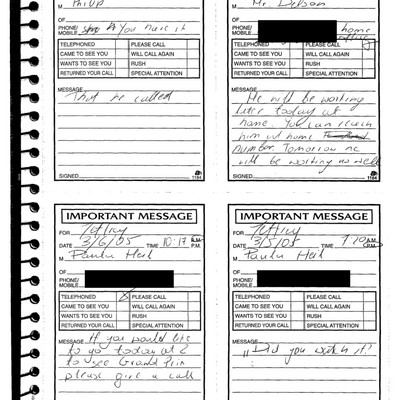 M Philip
OF
PHONE/
MOBILE you have it
TELEPHONED PLEASE CALL
CAME TO SEE YOU WILL CALL AGAIN
WANTS TO SEE YOU RUSH
RETURNED YOUR CALL SPECIAL ATTENTION
MESSAGE
That he called
SIGNED 1184
M Mr.
OF
PHONE/
MOBILE home
office
TELEPHONED PLEASE CALL
CAME TO SEE YOU WILL CALL AGAIN
WANTS TO SEE YOU RUSH
RETURNED YOUR CALL SPECIAL ATTENTION
MESSAGE
He will be working
later today at
home. You can reach
him at home
number. Tomorrow he
will be working as well
SIGNED 1184
IMPORTANT MESSAGE
FOR Jeffrey
DATE 3/6/05 TIME 10:17 A.M. P.M.
M Paula Heil
OF
PHONE/
MOBILE
TELEPHONED X PLEASE CALL
CAME TO SEE YOU WILL CALL AGAIN
WANTS TO SEE YOU RUSH
RETURNED YOUR CALL SPECIAL ATTENTION
MESSAGE If you would like
to go today at 2
to see Grand Prix
please give a call
IMPORTANT MESSAGE
FOR Jeffrey
DATE 3/5/05 TIME 9:20 A.M. P.M.
M Paula Heil
OF
PHONE/
MOBILE
TELEPHONED PLEASE CALL
CAME TO SEE YOU WILL CALL AGAIN
WANTS TO SEE YOU RUSH
RETURNED YOUR CALL SPECIAL ATTENTION
MESSAGE
"Did you watch it?"